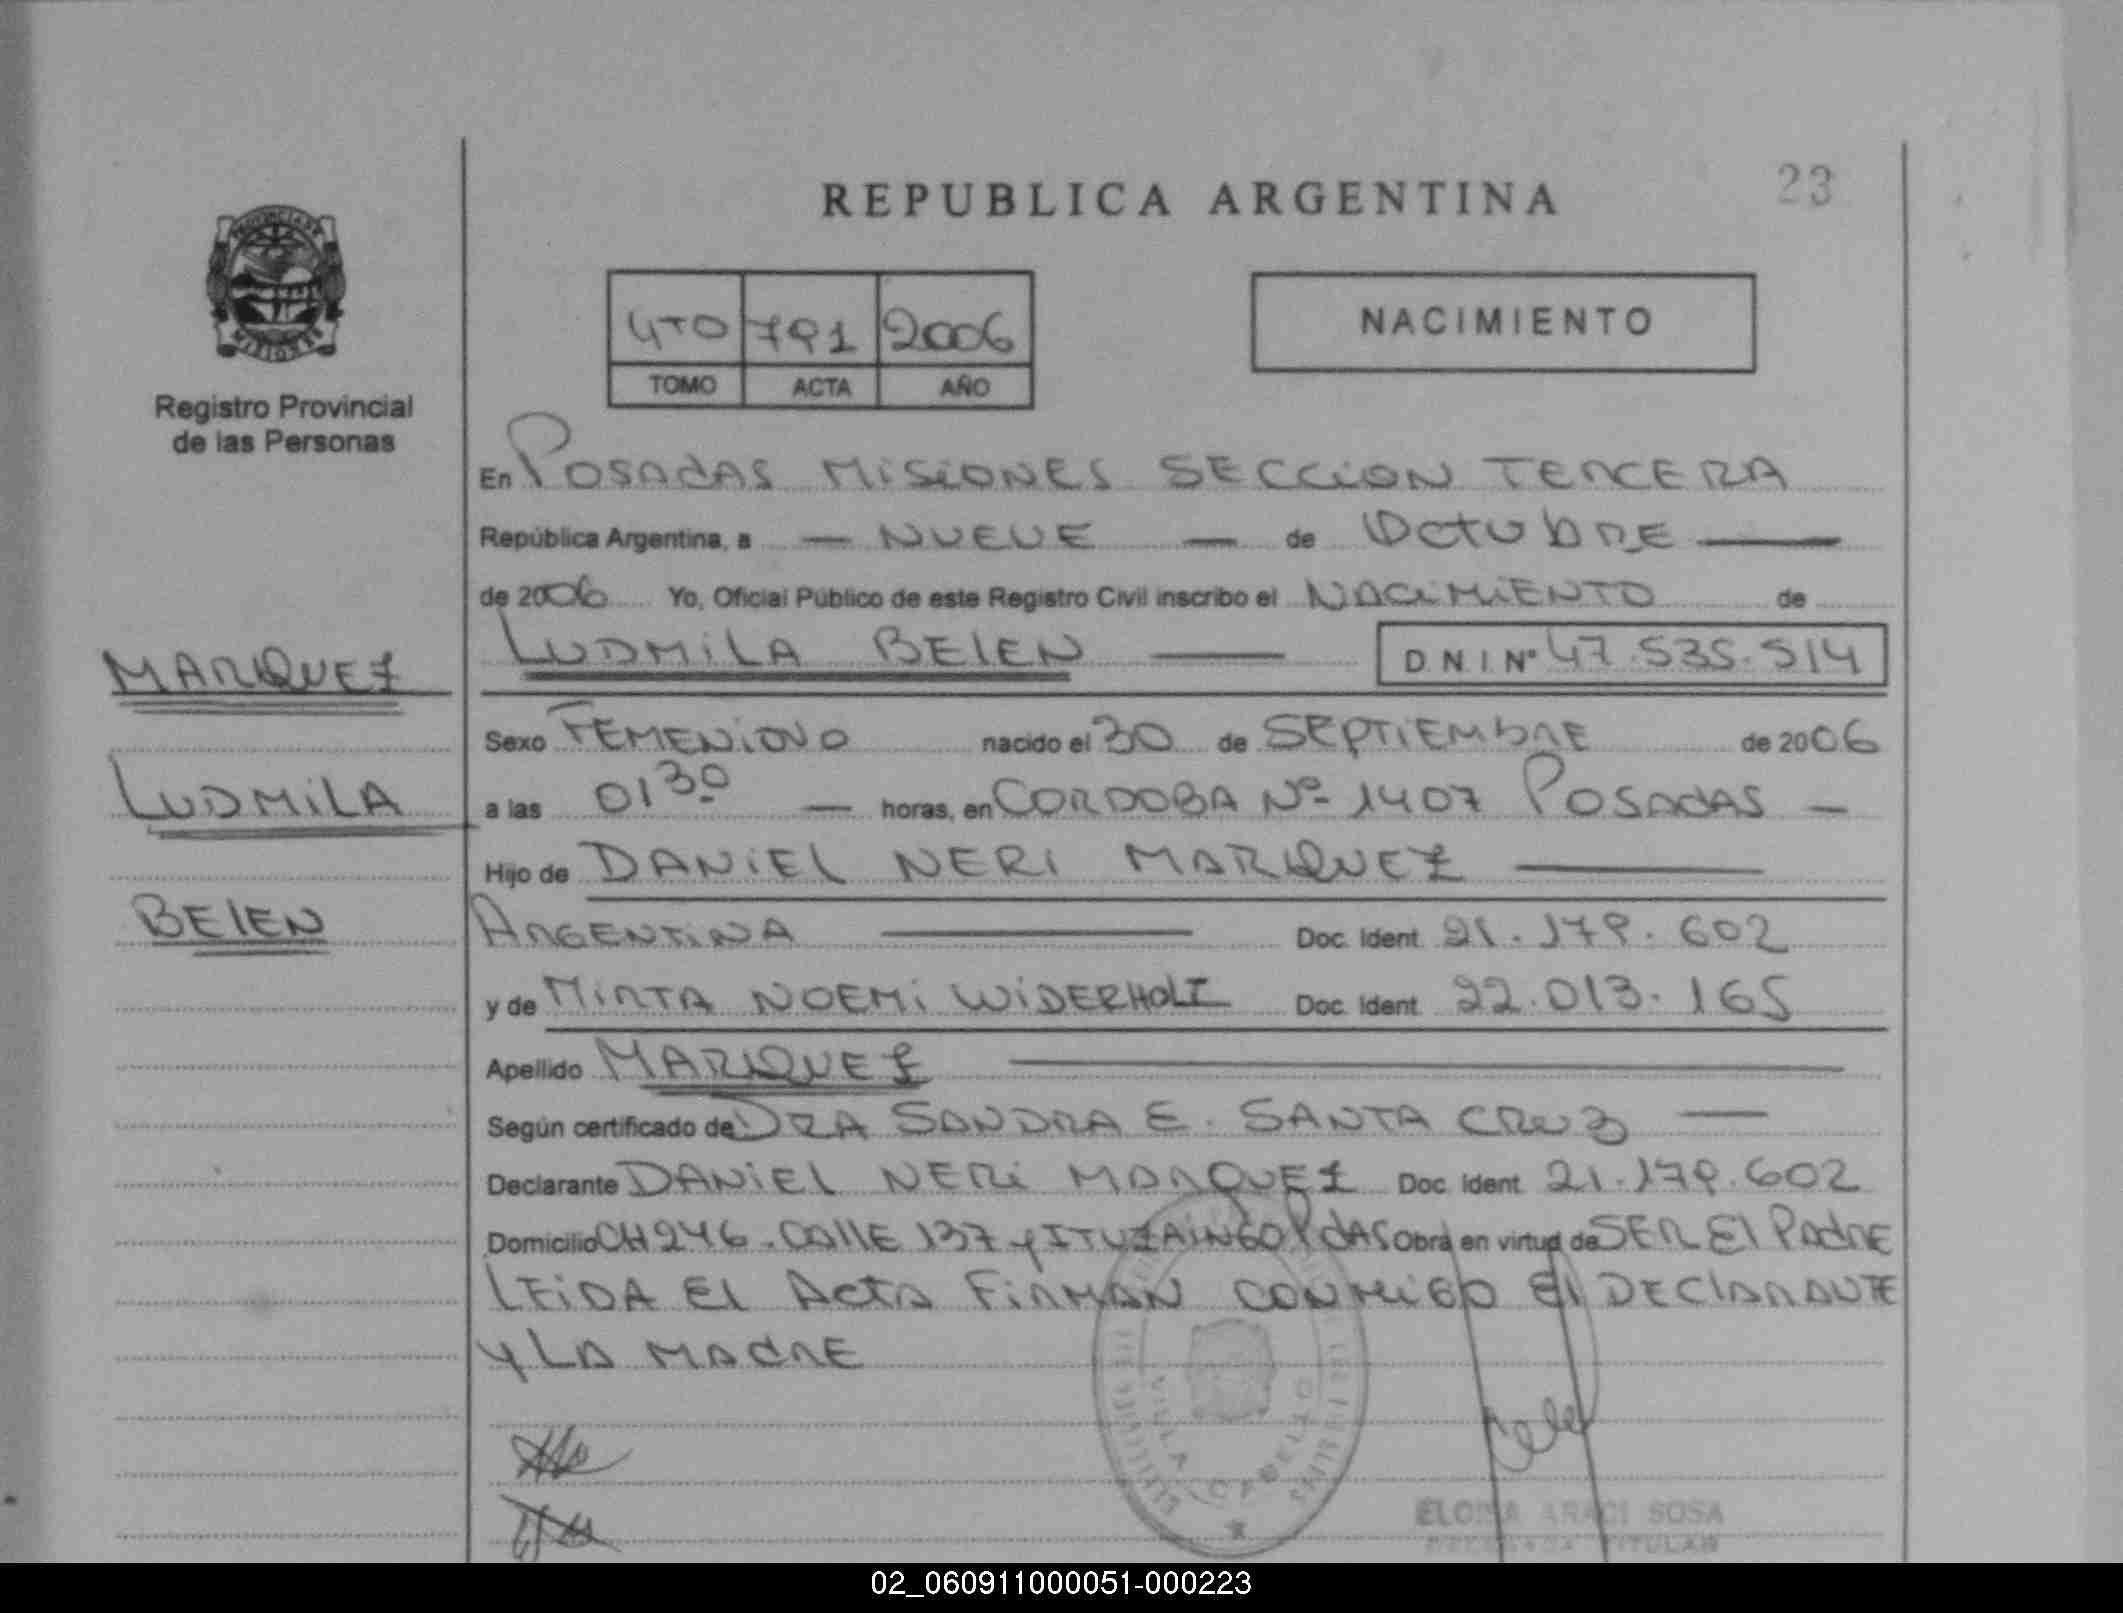 REPUBLICA ARGENTINA
23
4TO 791 2006
TOMO ACTA AÑO
NACIMIENTO
Registro Provincial
de las Personas
En POSADAS MISIONES SECCION TERCERA
República Argentina, a — NUEVE — de OCTUBRE —
de 2006 Yo, Oficial Público de este Registro Civil inscribo el NACIMIENTO de
LUDMILA BELEN — D N I Nº 47.535.514
MARQUEZ
LUDMILA
BELEN
Sexo FEMENINO nacido el 30 de SEPTIEMBRE de 2006
a las 0130 — horas, en CORDOBA Nº 1407 POSADAS —
Hijo de DANIEL NERI MARQUEZ —
ARGENTINA — Doc. Ident. 21.179.602
y de MIRTA NOEMI WIDERHOLT Doc. Ident. 22.013.165
Apellido MARQUEZ —
Según certificado de DRA SANDRA E. SANTA CRUZ —
Declarante DANIEL NERI MARQUEZ Doc. Ident. 21.179.602
Domicilio CH 246. CALLE 137 y ITUZAINGO PdAS Obra en virtud de SER El PADRE
LEIDA El ACTA FIRMAN CONMIGO El DECLARANTE
y LA MADRE
VILLA
ARACI SOSA
TITULAR
02_060911000051-000223